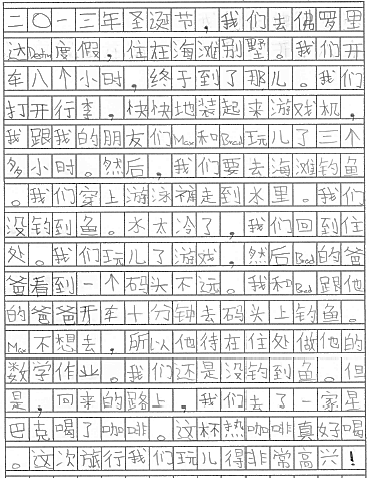 二〇一三年圣诞节，我们去佛罗里
达Destin度假，住在海滩别墅。我们开
车八个小时，终于到了那儿。我们
打开行李，快快地装起来游戏机，
我跟我的朋友们Max和Brad玩儿了三个
多小时。然后，我们要去海滩钓鱼
。我们穿上游泳裤走到水里。我们
没钓到鱼。水太冷了，我们回到住
处。我们玩儿了游戏，然后Brad的爸
爸看到一个码头不远。我和Brad跟他
的爸爸开车十分钟去码头上钓鱼。
Max不想去，所以他待在住处做他的
数学作业。我们还是没钓到鱼。但
是，回来的路上，我们去了一家星
巴克喝了咖啡。这杯热咖啡真好喝
。这次旅行我们玩儿得非常高兴！